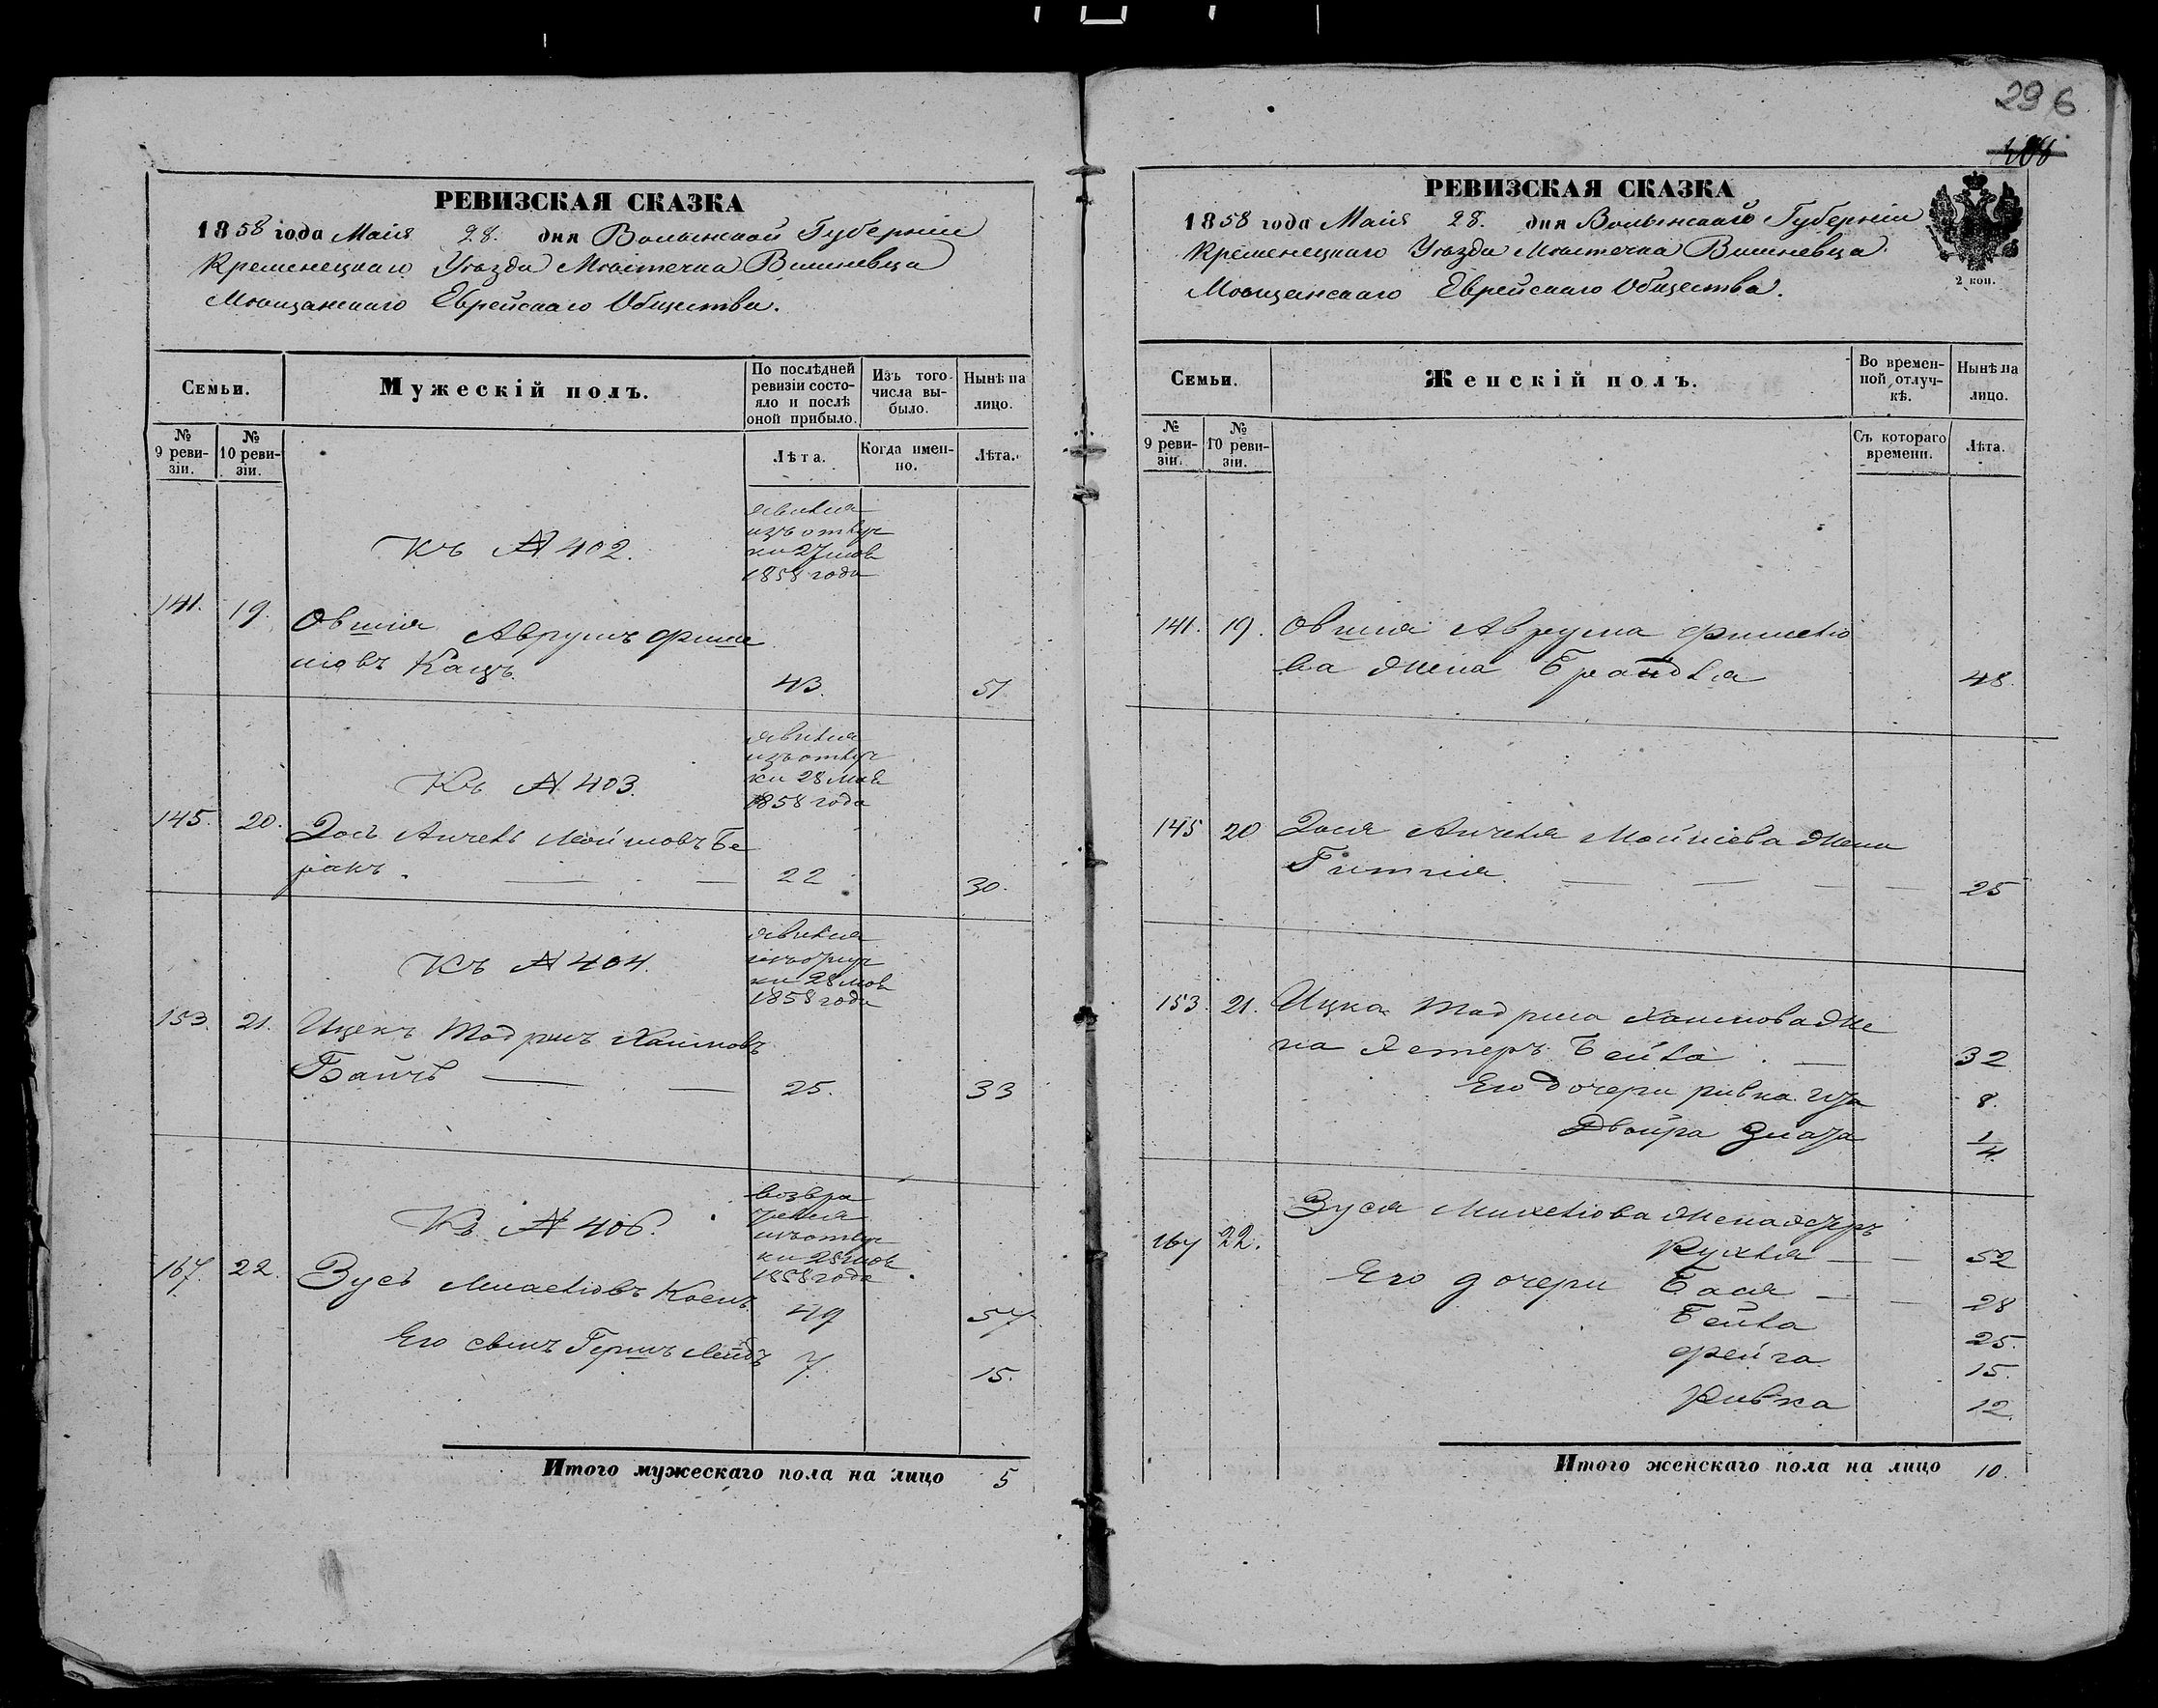 296
РЕВИЗСКАЯ СКАЗКА
1858 года Маія 28. дня Волынской Губерніи
Кременецкаго Уѣзда Мѣстечка Вишневца
Мѣщанскаго Еврейскаго Общества.
Семьи.
Мужескій полъ.
По послѣдней
ревизіи состо-
яло и послѣ
оной прибыло.
Изъ того
числа вы-
было.
Нынѣ на
лицо.
№
9 реви-
зіи.
№
10 реви-
зіи.
Лѣта.
Когда имен-
но.
Лѣта.
Къ № 402.
изъ отлуч
ки 27 мая
1858 года
141. 19. Овшія Аврумъ Фише
лювъ Кацъ. 43. 51
Къ № 403.
изъ отлуч
ки 28 мая
1858 года
145. 20. Зось Анчель Мойшовъ Бе
ракъ. 22 30.
Къ № 404.
изъ отлуч
ки 28 мая
1858 года
153. 21. Ицекъ Тодрисъ Хаимовъ
25. 33
Къ № 406.
возвра
изъ отлуч
ки 28 мая
1858 года
167. 22. Зусь Михелювъ 49 57
Его сынъ Гершъ Лейбъ 7. 15.
Итого мужескаго пола на лицо 5
РЕВИЗСКАЯ СКАЗКА
1858 года Маія 28. дня Волынскаго Губерніи
Кременецкаго Уѣзда Мѣстечка Вишневца.
Мѣщанскаго Еврейскаго Общества.
2 коп.
Семьи.
Женскій полъ.
Во времен-
ной отлуч-
кѣ.
Нынѣ на
лицо.
№
9 реви-
зіи.
№
10 реви-
зіи.
Съ котораго
времени.
Лѣта.
141. 19. Овшія Аврума Фишелю
ва жена Брандля 48.
145 20 Зося Анчеля Мойшова жена
Гитля. 25
153. 21. Ицка Тодриса Хаимова же
на Эстеръ Бейла. 32
Его дочери Ривка 8.
Двойра Злата 1/4
167 22. Зуся Михелюва жена Эстеръ
Рухля 52
Его дочери Бася 28
Бейла 25.
Фейга 15.
Ривка 12.
Итого женскаго пола на лицо 10.